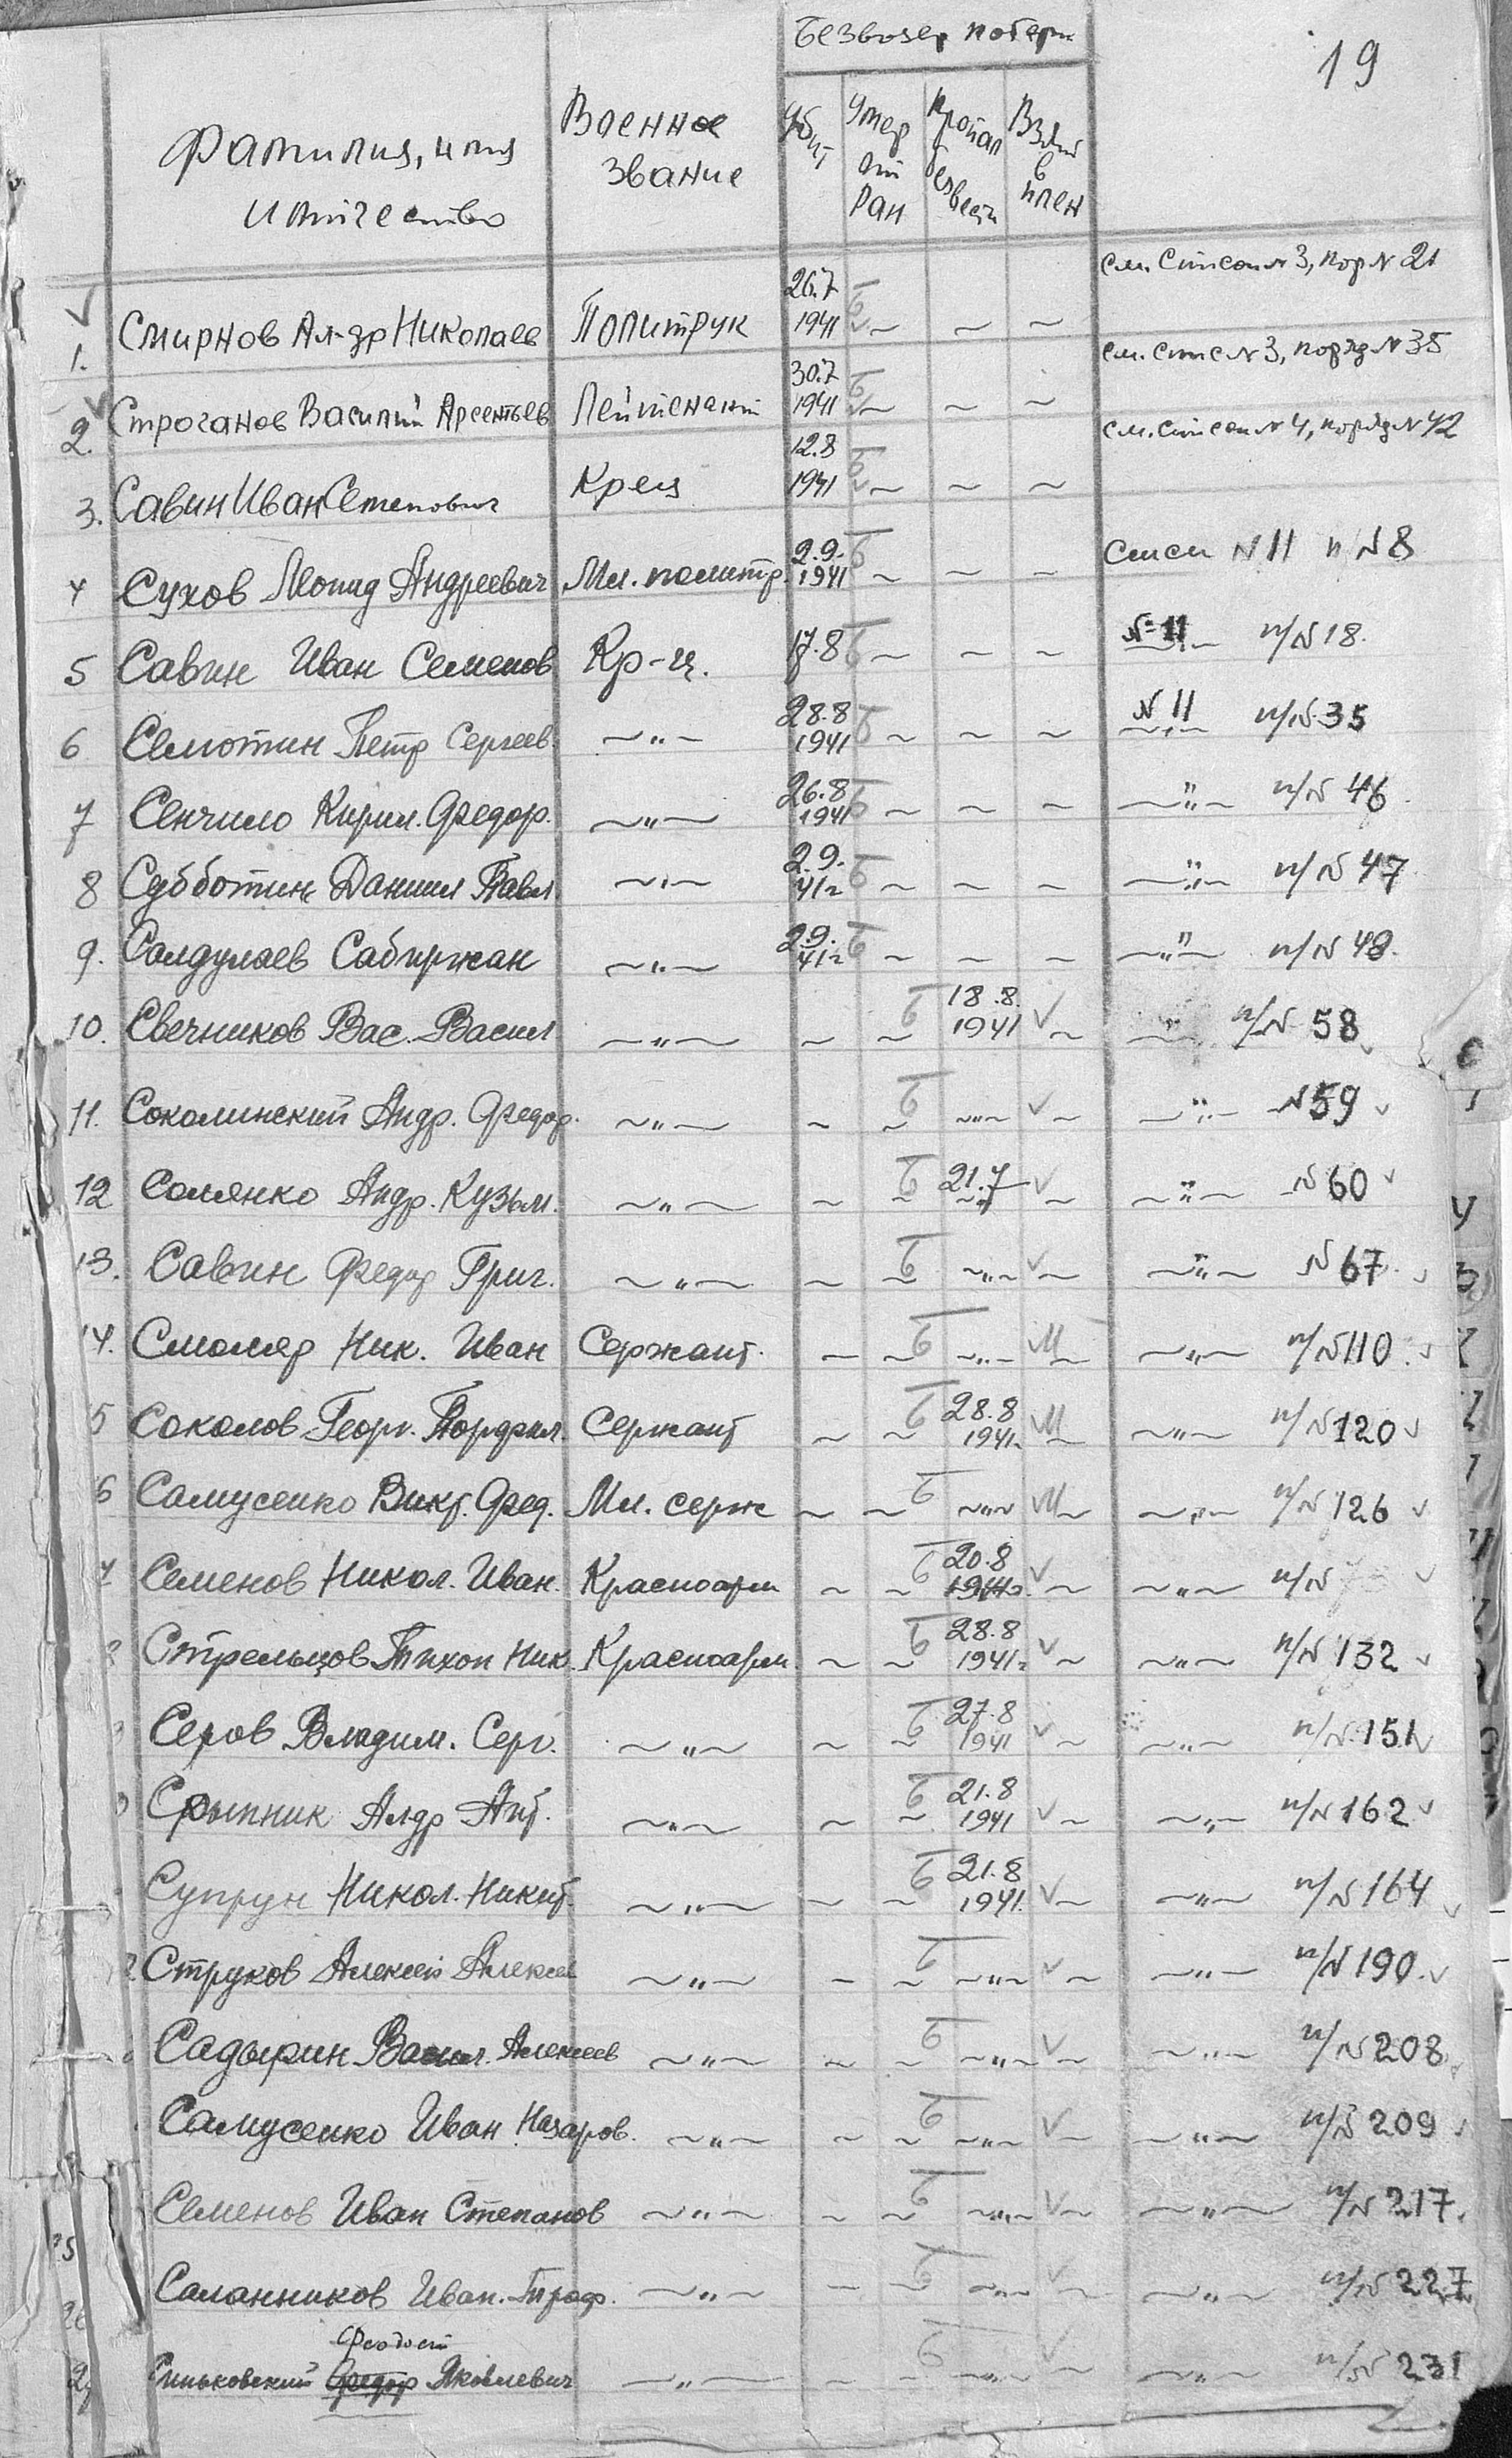 19
Безвозвр потери
Фамилия, имя и отчество Военное звание Убит Умер от ран Пропал безвести Взят в плен
см. Список N 3, пор N 21
1. Смирнов Ал-др Николаев Политрук 26.7 1941 ~ ~ ~
см. спис N 3, поряд N 35
2. Строганов Василий Арсентьев Лейтенант 30.7 1941 ~ ~ ~
см. список N 4, поряд N 42
3. Савин Иван Семенович Крец 12.8 1941 ~ ~ ~
4 Сухов Леонид Андреевич Мл. политр. 2.9. 1941 ~ ~ ~ списи N 11 п N 8
5 Савин Иван Семенов Кр-ц. 17.8 ~ ~ ~ N 11 п/N 18.
6 Семотин Петр Сергеев. ~"~ 28.8 1941 ~ ~ ~ N 11 ~"~ п/N 35
7 Сенчило Кирил. Федор. ~"~ 26.8 1941 ~ ~ ~ ~"~ п/N 46
8 Субботин Даниил Павл ~"~ 2.9. 41г ~ ~ ~ ~"~ п/N 47
9. Салдулаев Сабиржан ~"~ 2.9. 41г ~ ~ ~ ~"~ п/N 48.
10. Свечников Вас. Васил ~"~ ~ ~ 18.8. 1941 ~ ~"~ п/N 58
11. Соколинский Андр. Федор. ~"~ ~ ~ ~"~ ~ ~"~ N 59
12 Солянко Андр. Кузьм. ~"~ ~ ~ 21.7 ~"~ ~ ~"~ N 60
13. Савин Федор Григ. ~"~ ~ ~ ~"~ ~ ~"~ N 67
14. Смоляр Ник. Иван Сержант. ~ ~ ~"~ ~ ~"~ п/N 110
5 Соколов Георг. Порфил. Сержант ~ ~ 28.8 1941г ~ ~"~ п/N 120
6 Самусенко Викт. Фед. Мл. серж ~ ~ ~"~ ~ ~"~ п/N 126
7 Семенов Никол. Иван. Красноарм ~ ~ 20.8 1941г. ~ ~"~ п/N
8 Стрельцов Тихон Ник. Красноарм. ~ ~ 28.8 1941г ~ ~"~ п/N 132
Серов Владим. Серг. ~"~ ~ ~ 27.8 1941 ~ ~"~ п/N 151
Срыпник Алдр Ант. ~"~ ~ ~ 21.8 1941 ~ ~"~ п/N 162
Супрун Никол. Никит. ~"~ ~ ~ 21.8 1941. ~ ~"~ п/N 164
Струков Алексей Алексеев ~"~ ~ ~ ~"~ ~ ~"~ п/N 190.
Садырин Васил. Алексеев ~"~ ~ ~ ~"~ ~ ~"~ п/N 208
Самусенко Иван Назаров. ~"~ ~ ~ ~"~ ~ ~"~ п/N 209
Семенов Иван Степанов ~"~ ~ ~ ~"~ ~ ~"~ п/N 217.
Саланников Иван. Проф. ~"~ ~ ~ ~"~ ~ ~"~ п/N 227
Феодосий
27 Синьковский Федор Яковлевич ~"~ ~ ~ ~"~ ~ ~"~ п/N 231